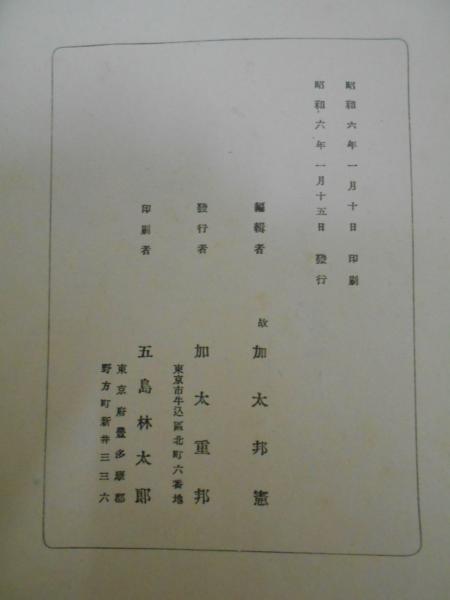 昭和六年一月十日 印刷
昭和六年一月十五日 發行
編輯者 故 加太邦憲
發行者 加太重邦
東京市牛込區北町六番地
印刷者 五島林太郎
東京府豐多摩郡
野方町新井三三六